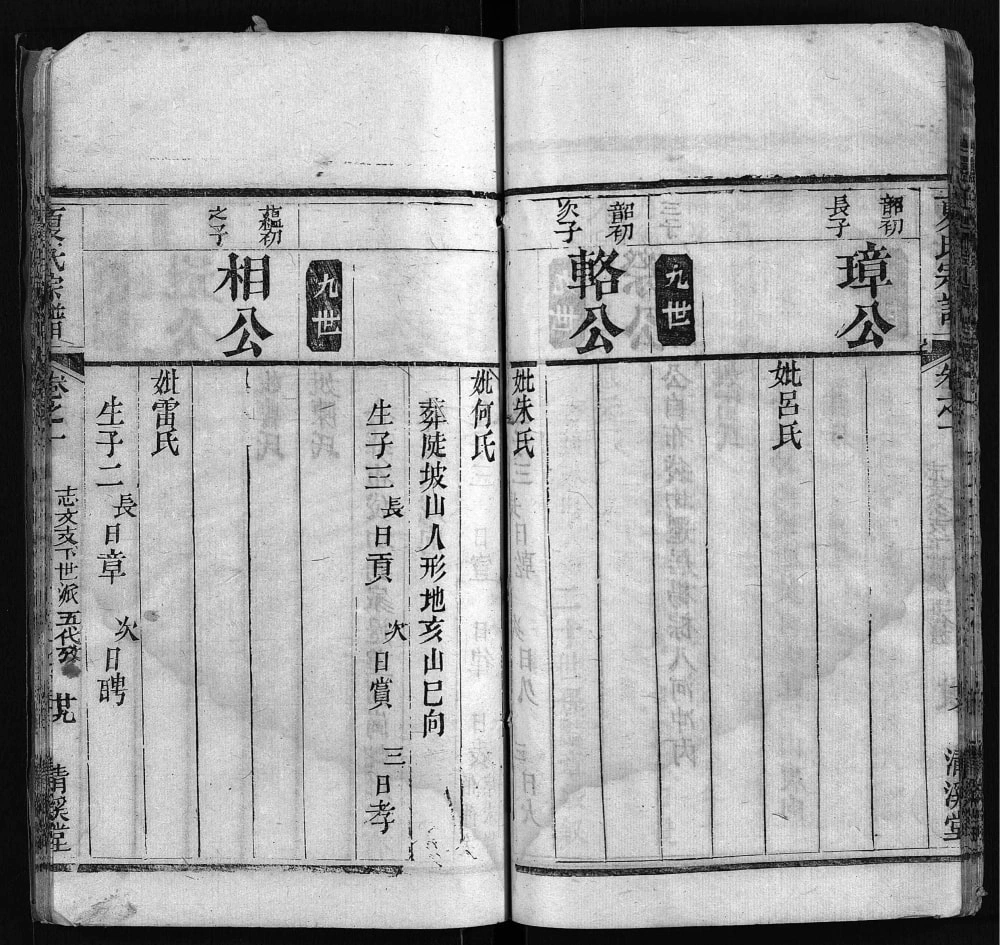 夏氏宗譜
卷之一
清溪堂
韶初
長子
璋公
妣呂氏
九世
韶初
次子
輅公
妣朱氏
妣何氏
葬陡坡山人形地亥山巳向
生子三 長曰貢 次曰賞 三曰孝
九世
蘊初
之子
相公
妣雷氏
生子二 長曰章 次曰聘
夏氏宗譜
卷之一
志文支下世派五代孜
廿九
清溪堂